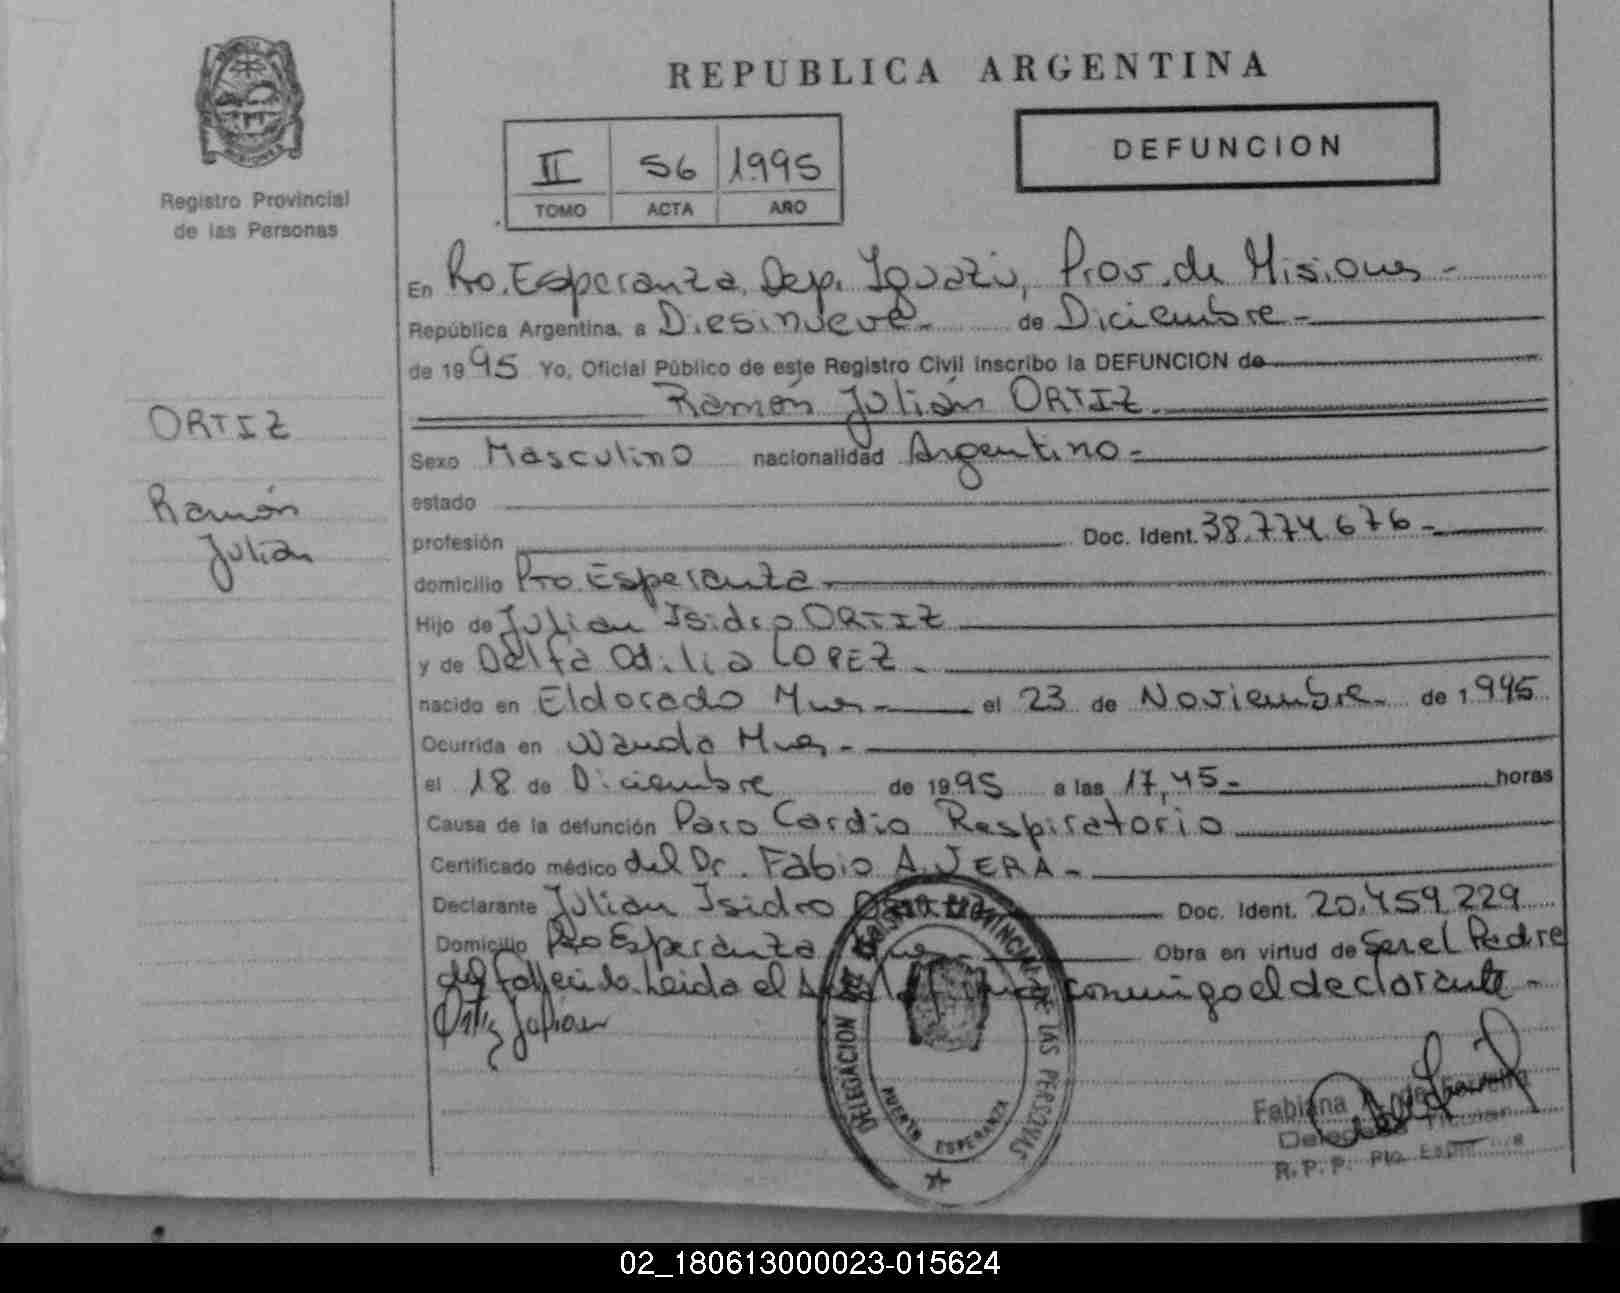 REPUBLICA ARGENTINA
MISIONES
Registro Provincial
de las Personas
II 56 1995
TOMO ACTA AÑO
DEFUNCION
En Pto. Esperanza, Dep. Iguazú, Prov. de Misiones -
República Argentina, a Diesinueve - de Diciembre -
de 1995 Yo, Oficial Público de este Registro Civil inscribo la DEFUNCION de
Ramón Julián ORTIZ
ORTIZ
Ramón
Julián
Sexo Masculino nacionalidad Argentino -
estado
profesión Doc. Ident. 38.774.676 -
domicilio Pto. Esperanza -
Hijo de Julian Isidro ORTIZ
y de Delfa Odilia LOPEZ -
nacido en Eldorado Mnes - el 23 de Noviembre - de 1995
Ocurrida en Wanda Mnes -
el 18 de Diciembre de 1995 a las 17,45 - horas
Causa de la defunción Paro Cardio Respiratorio
Certificado médico del Dr. Fabio A. VERA -
Declarante Julian Isidro Doc. Ident. 20.459.229
Domicilio Pto Esperanza Obra en virtud de Ser el Padre
del fallecido. Leida el conmigo el declarante -
Ortiz Julian
DELEGACION PROVINCIAL DE LAS PERSONAS
PUERTO ESPERANZA
Fabiana
Titular
R.P.P. Pto. Esperanza
02_180613000023-015624